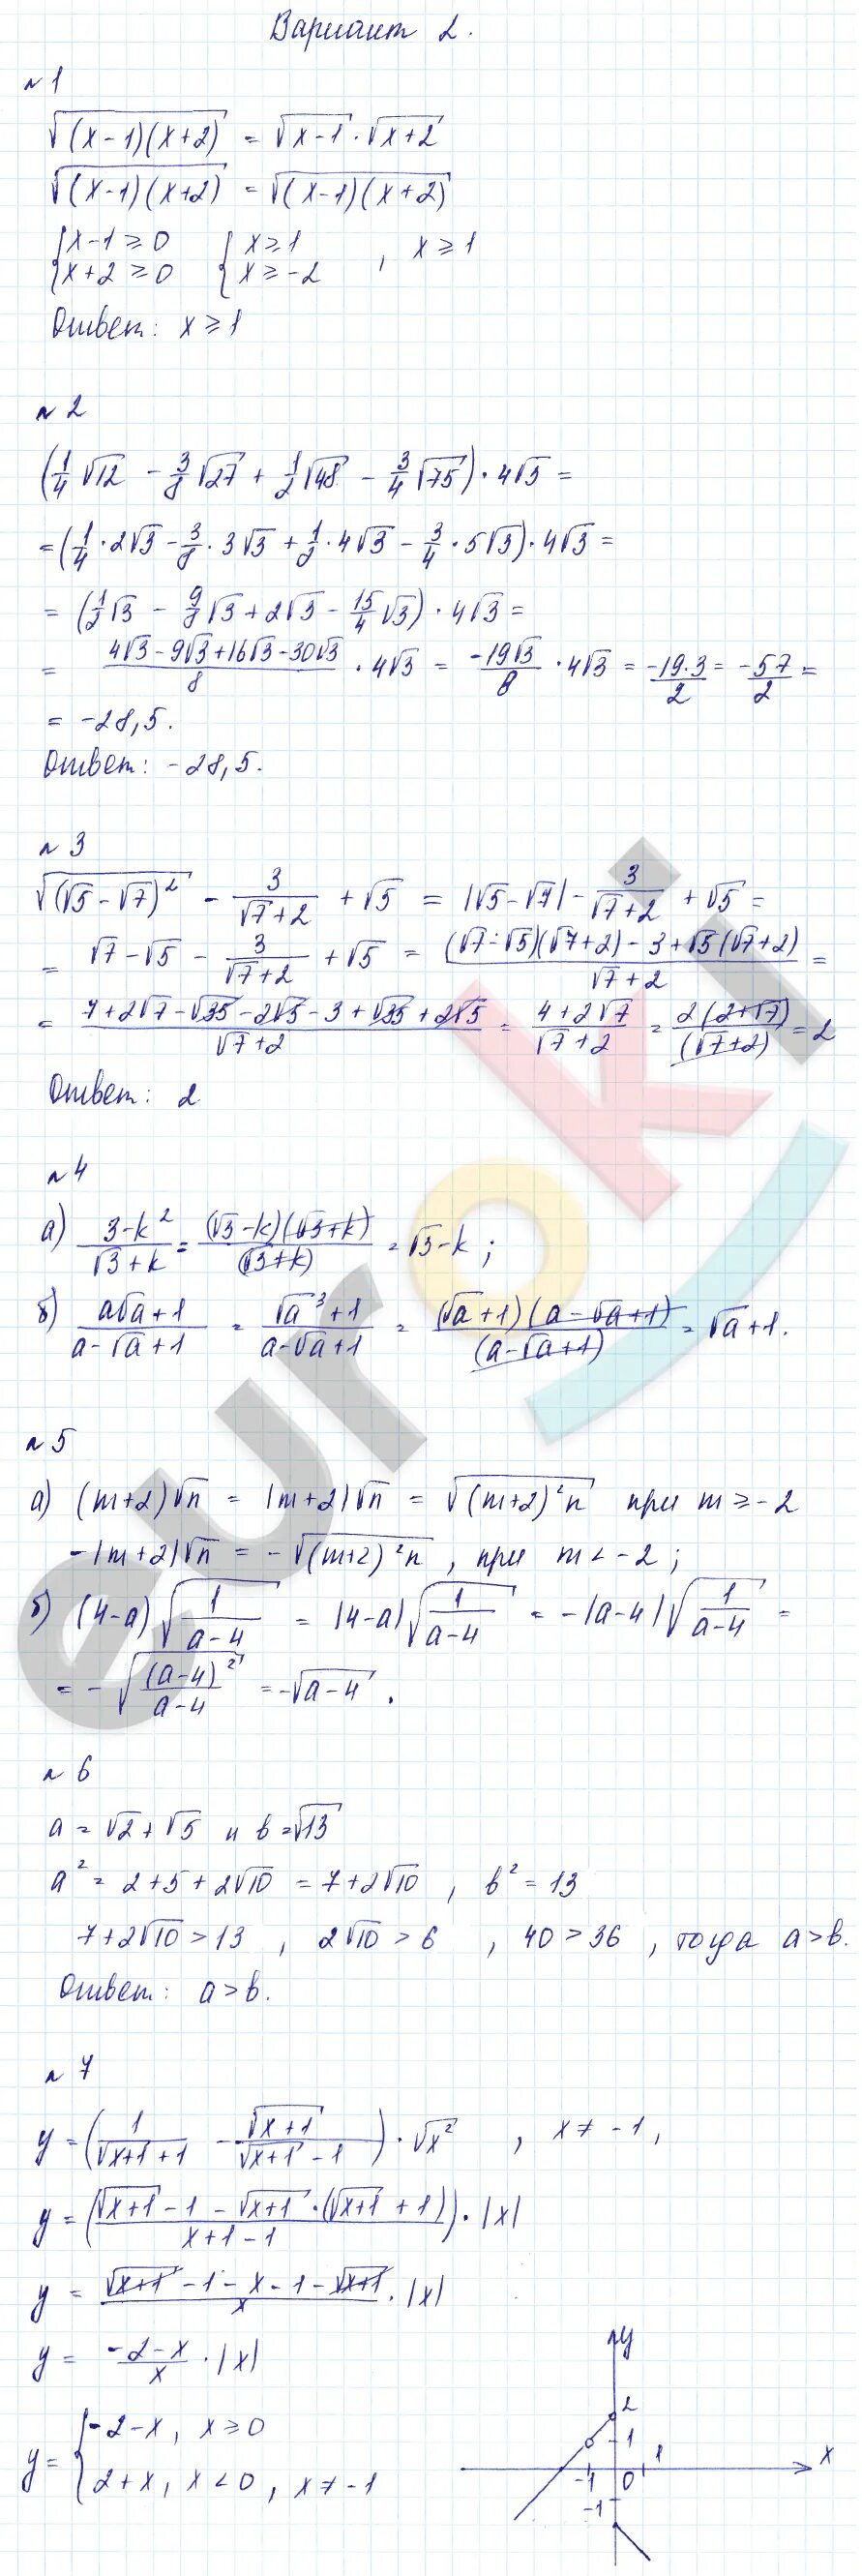 Вариант 2.
№1
√((x-1)(x+2)) = √(x-1) · √(x+2)
√((x-1)(x+2)) = √((x-1)(x+2))
{x-1 ≥ 0 {x ≥ 1 , x ≥ 1
{x+2 ≥ 0 {x ≥ -2
Ответ: x ≥ 1
№2
(1/4 √12 - 3/8 √27 + 1/2 √48 - 3/4 √75) · 4√3 =
= (1/4 · 2√3 - 3/8 · 3√3 + 1/2 · 4√3 - 3/4 · 5√3) · 4√3 =
= (1/2 √3 - 9/8 √3 + 2√3 - 15/4 √3) · 4√3 =
= (4√3 - 9√3 + 16√3 - 30√3)/8 · 4√3 = (-19√3)/8 · 4√3 = (-19·3)/2 = (-57)/2 =
= -28,5.
Ответ: -28,5.
№3
√((√5 - √7)²) - 3/(√7+2) + √5 = |√5-√7| - 3/(√7+2) + √5 =
= √7 - √5 - 3/(√7+2) + √5 = ((√7-√5)(√7+2) - 3 + √5(√7+2))/(√7+2) =
= (7+2√7-√35-2√5-3+√35+2√5)/(√7+2) = (4+2√7)/(√7+2) = (2(2+√7))/(√7+2) = 2
Ответ: 2
№4
а) (3-k²)/(√3+k) = ((√3-k)(√3+k))/(√3+k) = √3-k ;
б) (a√a+1)/(a-√a+1) = (√a³+1)/(a-√a+1) = ((√a+1)(a-√a+1))/(a-√a+1) = √a+1.
№5
а) (m+2)√n = |m+2|√n = √((m+2)²n) при m ≥ -2
-|m+2|√n = -√((m+2)²n) , при m < -2 ;
б) (4-a)√(1/(a-4)) = |4-a|√(1/(a-4)) = -|a-4|√(1/(a-4)) =
= -√((a-4)²/(a-4)) = -√(a-4) .
№6
a = √2 + √5 и b = √13
a² = 2+5+2√10 = 7+2√10 , b² = 13
7+2√10 > 13 , 2√10 > 6 , 40 > 36 , тогда a > b.
Ответ: a > b.
№7
y = (1/(√(x+1)+1) - √(x+1)/(√(x+1)-1)) · √x² , x ≠ -1 ,
y = ((√(x+1) - 1 - √(x+1) · (√(x+1)+1))/(x+1-1)) · |x|
y = (√(x+1) - 1 - x - 1 - √(x+1))/x · |x|
y = (-2-x)/x · |x|
y = {-2-x, x ≥ 0
{2+x, x < 0, x ≠ -1
y
2
1
x
-1 0 1
-1
euroki